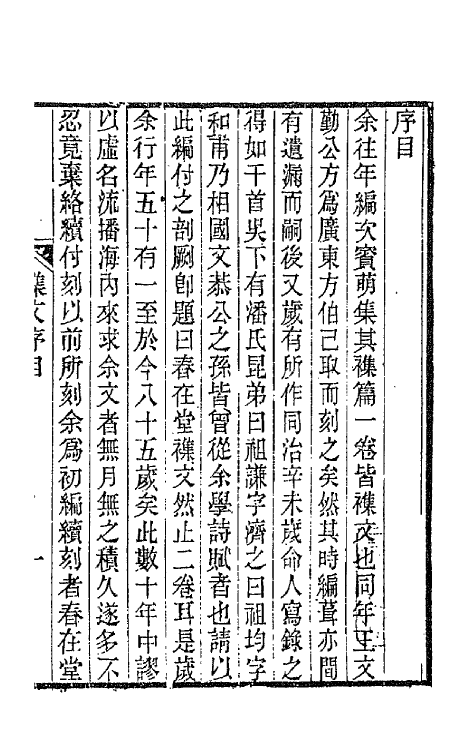 序目
余往年編次賓萌集其襍篇一卷皆襍文也同年王文
勤公方爲廣東方伯已取而刻之矣然其時編葺亦間
有遺漏而嗣後又歲有所作同治辛未歲命人寫錄之
得如干首吳下有潘氏昆弟曰祖謙字濟之曰祖均字
和甫乃相國文恭公之孫皆曾從余學詩賦者也請以
此編付之剖劂卽題曰春在堂襍文然止二卷耳是歲
余行年五十有一至於今八十五歲矣此數十年中謬
以虛名流播海內來求余文者無月無之積久遂多不
忍竟棄絡續付刻以前所刻余爲初編續刻者春在堂
襍文序目
一